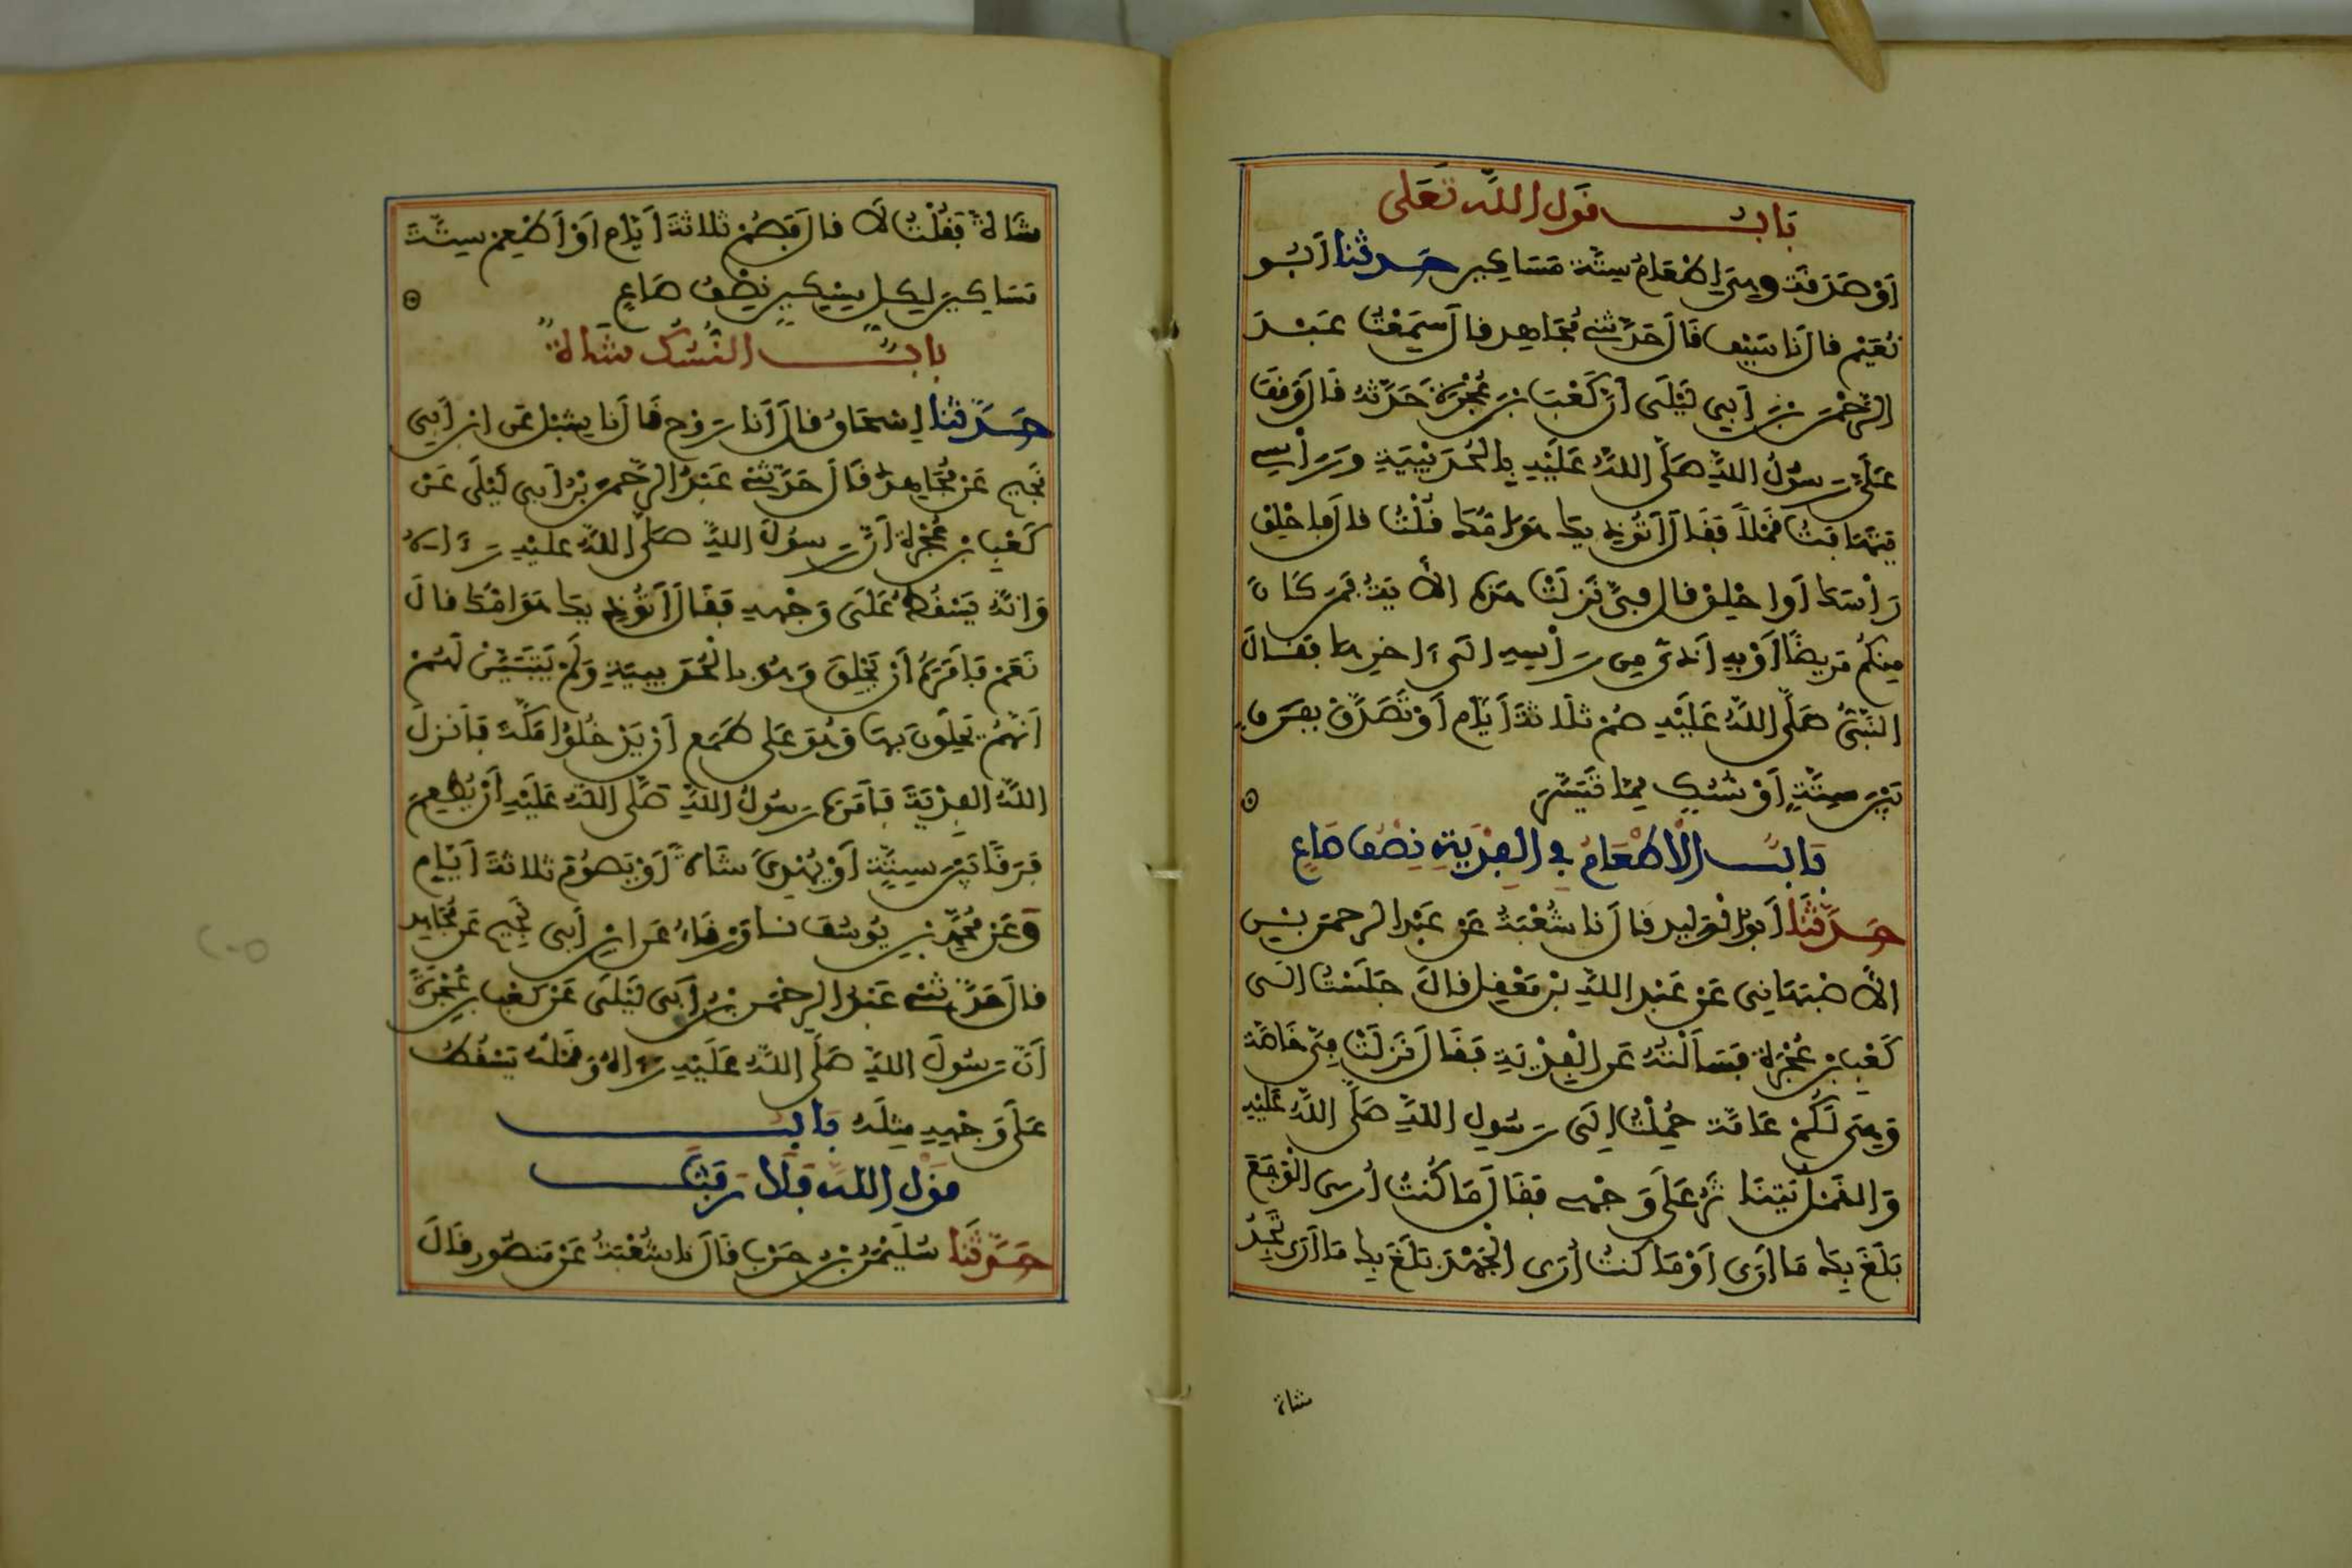 باب قول الله تعلى
أو صدقة وهي إطعام ستة مساكين حدثنا أبو
نعيم قال نا سيف قال حدثني مجاهد قال سمعت عبد
الرحمن بن أبي ليلى أن كعب بن عجرة حدثه قال وقف
علي رسول الله صلى الله عليه بالحديبية ورأسي
يتهافت قملا فقال أتؤذيك هوامك قلت قال فاحلق
رأسك أو احلق قال في نزلت هذه الآية فمن كان
منكم مريضا أو به أذى من رأسه إلى آخرها فقال
النبي صلى الله عليه صم ثلاثة أيام أو تصدق بفرق
بين ستة أو نسك مما تيسر
باب الإطعام في الفدية نصف صاع
حدثنا أبو الوليد قال نا شعبة عن عبد الرحمن بن
الأصبهاني عن عبد الله بن معقل قال جلست إلى
كعب بن عجرة فسألته عن الفدية فقال نزلت في خاصة
وهي لكم عامة حملت إلى رسول الله صلى الله عليه
والقمل يتناثر على وجهي فقال ما كنت أرى الوجع
بلغ بك ما أرى أو ما كنت أرى الجهد بلغ بك ما أرى تجد
شاة
شاة فقلت لا قال فصم ثلاثة أيام أو أطعم ستة
مساكين لكل مسكين نصف صاع
باب النسك شاة
حدثنا إسحاق قال أنا روح قال نا شبل عن ابن أبي
نجيح عن مجاهد قال حدثني عبد الرحمن بن أبي ليلى عن
كعب بن عجرة أن رسول الله صلى الله عليه رءاه
وأنه يسقط على وجهه فقال أتؤذيك هوامك قال
نعم فأمره أن يحلق وهو بالحديبية ولم يتبين لهم
أنهم يحلون بها وهو على طمع أن يدخلوا مكة فأنزل
الله الفدية فأمره رسول الله صلى الله عليه أن يطعم
فرقا بين ستة أو يهدي شاة أو يصوم ثلاثة أيام
وعن محمد بن يوسف نا ورقاء عن ابن أبي نجيح عن مجاهد
قال حدثني عبد الرحمن بن أبي ليلى عن كعب بن عجرة
أن رسول الله صلى الله عليه رءاه وقمله يسقط
على وجهه مثله باب
قول الله فلا رفث
حدثنا سليمن بن حرب قال نا شعبة عن منصور قال